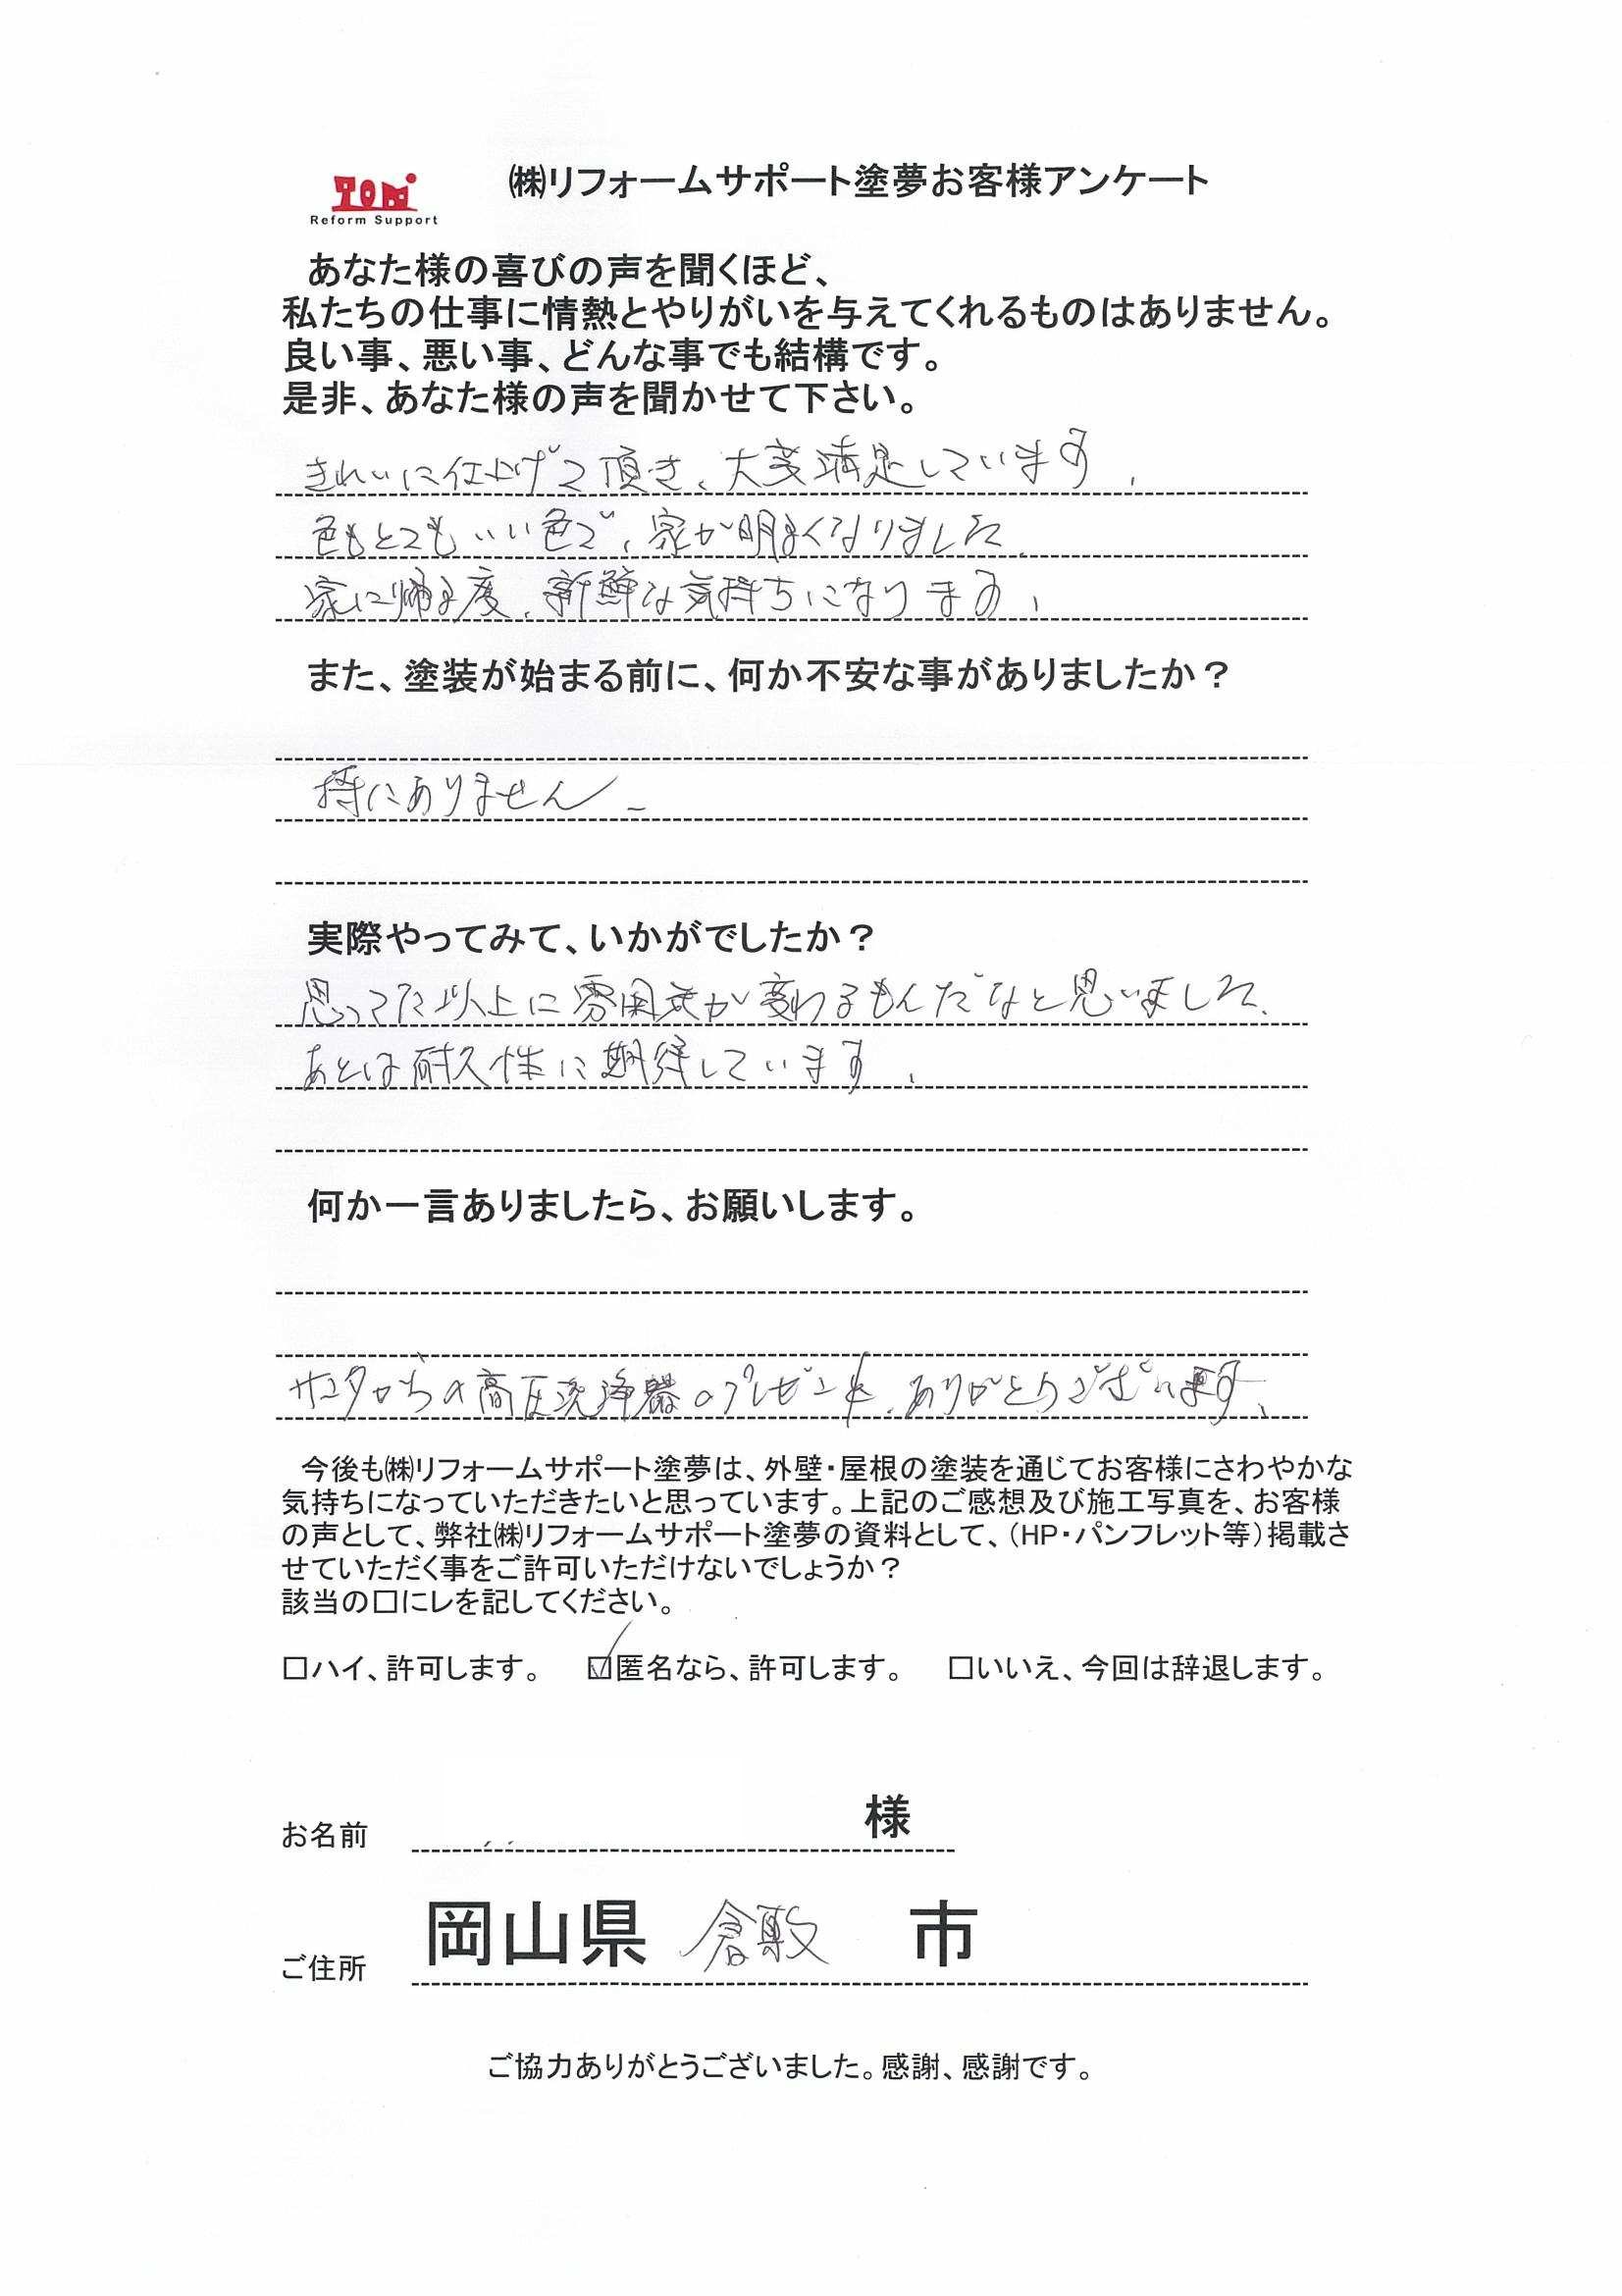 TOM
Reform Support
㈱リフォームサポート塗夢お客様アンケート
あなた様の喜びの声を聞くほど、
私たちの仕事に情熱とやりがいを与えてくれるものはありません。
良い事、悪い事、どんな事でも結構です。
是非、あなた様の声を聞かせて下さい。
きれいに仕上げて頂き、大変満足しています。
色もとてもいい色で、家が明るくなりました。
家に帰る度、新鮮な気持ちになります。
また、塗装が始まる前に、何か不安な事がありましたか？
特にありません。
実際やってみて、いかがでしたか？
思ってた以上に雰囲気が変わるもんだなと思いました。
あとは耐久性に期待しています。
何か一言ありましたら、お願いします。
サンタからの高圧洗浄器のプレゼント、ありがとうございます。
今後も㈱リフォームサポート塗夢は、外壁・屋根の塗装を通じてお客様にさわやかな
気持ちになっていただきたいと思っています。上記のご感想及び施工写真を、お客様
の声として、弊社㈱リフォームサポート塗夢の資料として、（HP・パンフレット等）掲載さ
せていただく事をご許可いただけないでしょうか？
該当の□にレを記してください。
□ハイ、許可します。 ☑匿名なら、許可します。 □いいえ、今回は辞退します。
お名前 様
ご住所 岡山県 倉敷 市
ご協力ありがとうございました。感謝、感謝です。